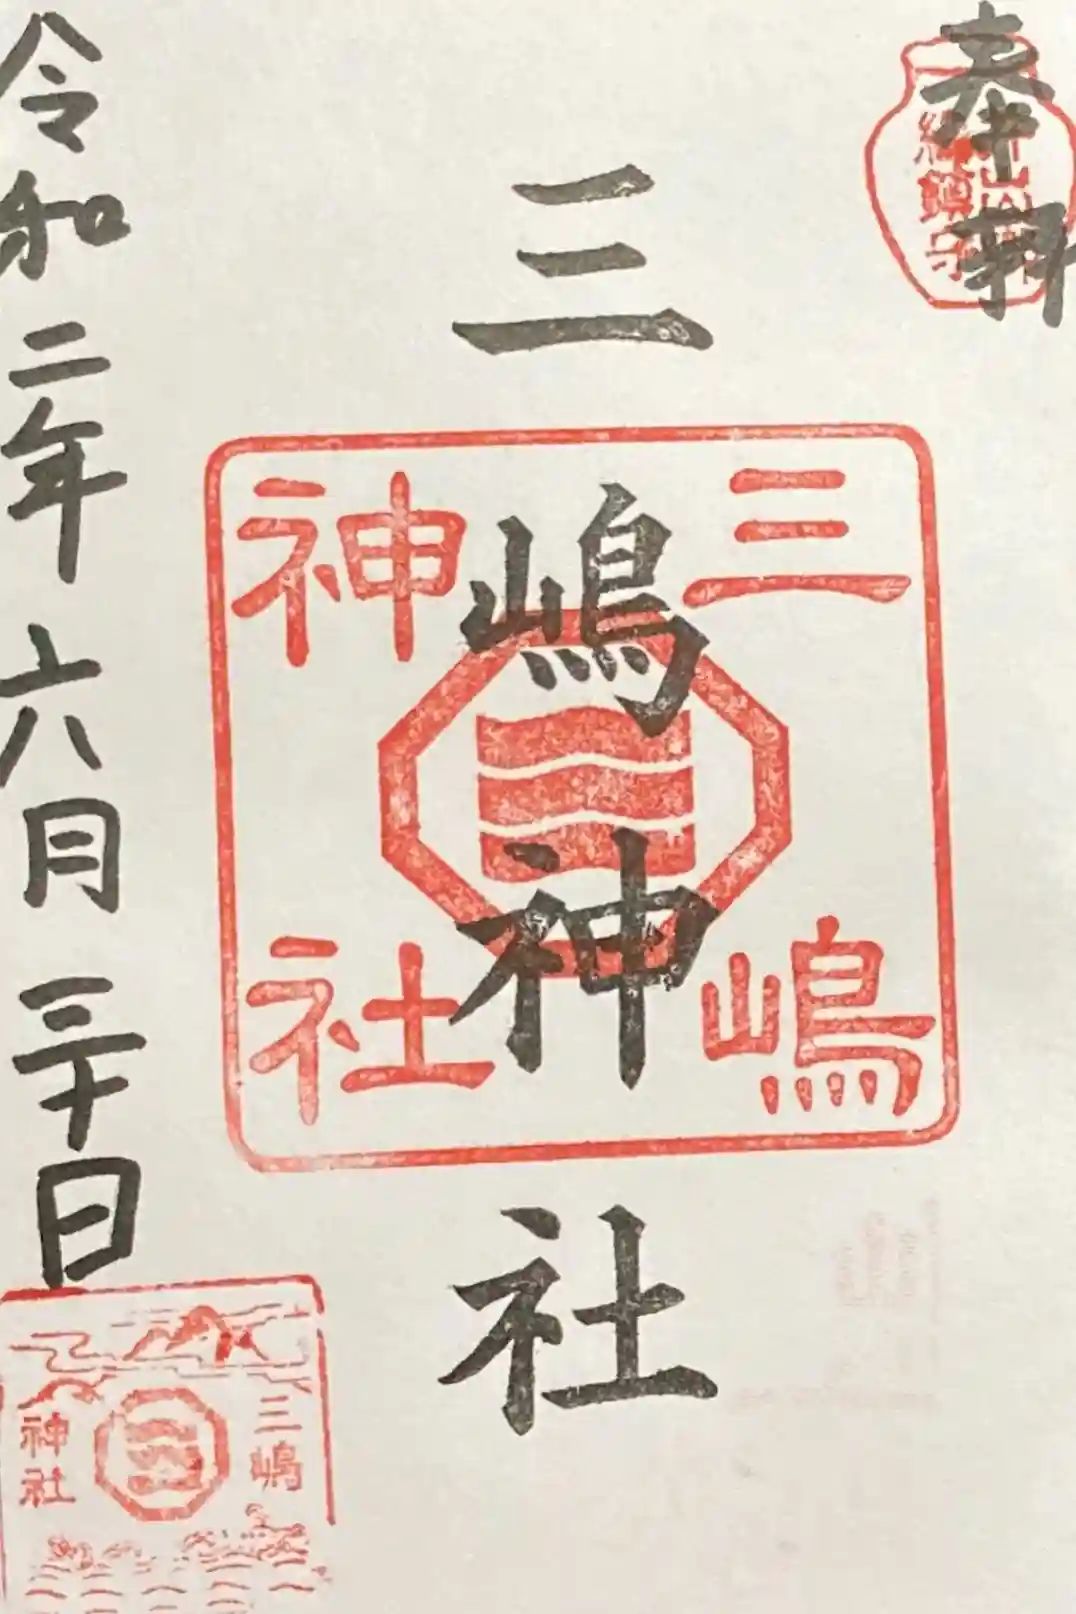 奉拝
三嶋神社
三嶋
神社
令和二年六月三十日
三嶋
神社